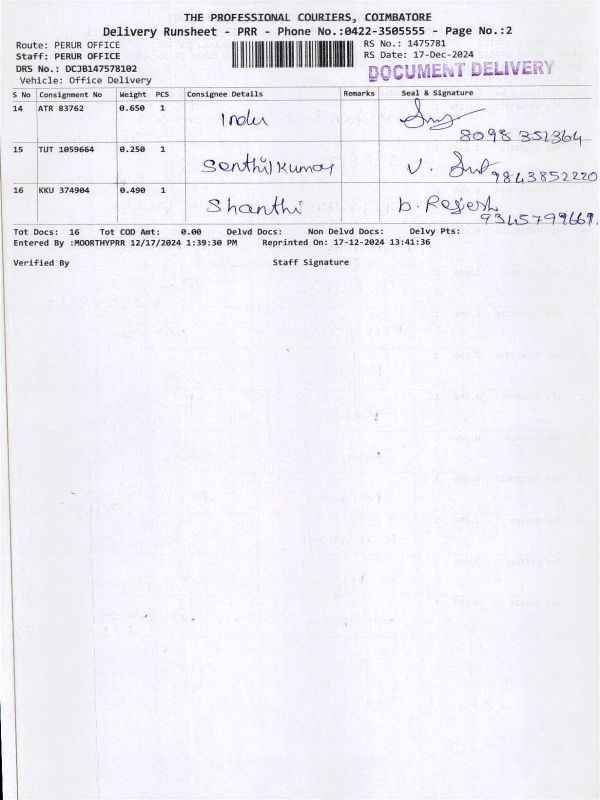 THE PROFESSIONAL COURIERS, COIMBATORE
Delivery Runsheet - PRR - Phone No.:0422-3505555 - Page No.:2
Route: PERUR OFFICE RS No.: 1475781
Staff: PERUR OFFICE RS Date: 17-Dec-2024
DRS No.: DCJB147578102 DOCUMENT DELIVERY
Vehicle: Office Delivery
S No Consignment No Weight PCS Consignee Details Remarks Seal & Signature
14 ATR 83762 0.650 1 Indu
8098 352364
15 TUT 1059664 0.250 1 Senthil kumar V.
9843852220
16 KKU 374904 0.490 1 Shanthi b. Rejesh
9345799669.
Tot Docs: 16 Tot COD Amt: 0.00 Delvd Docs: Non Delvd Docs: Delvy Pts:
Entered By :MOORTHYPRR 12/17/2024 1:39:30 PM Reprinted On: 17-12-2024 13:41:36
Verified By Staff Signature